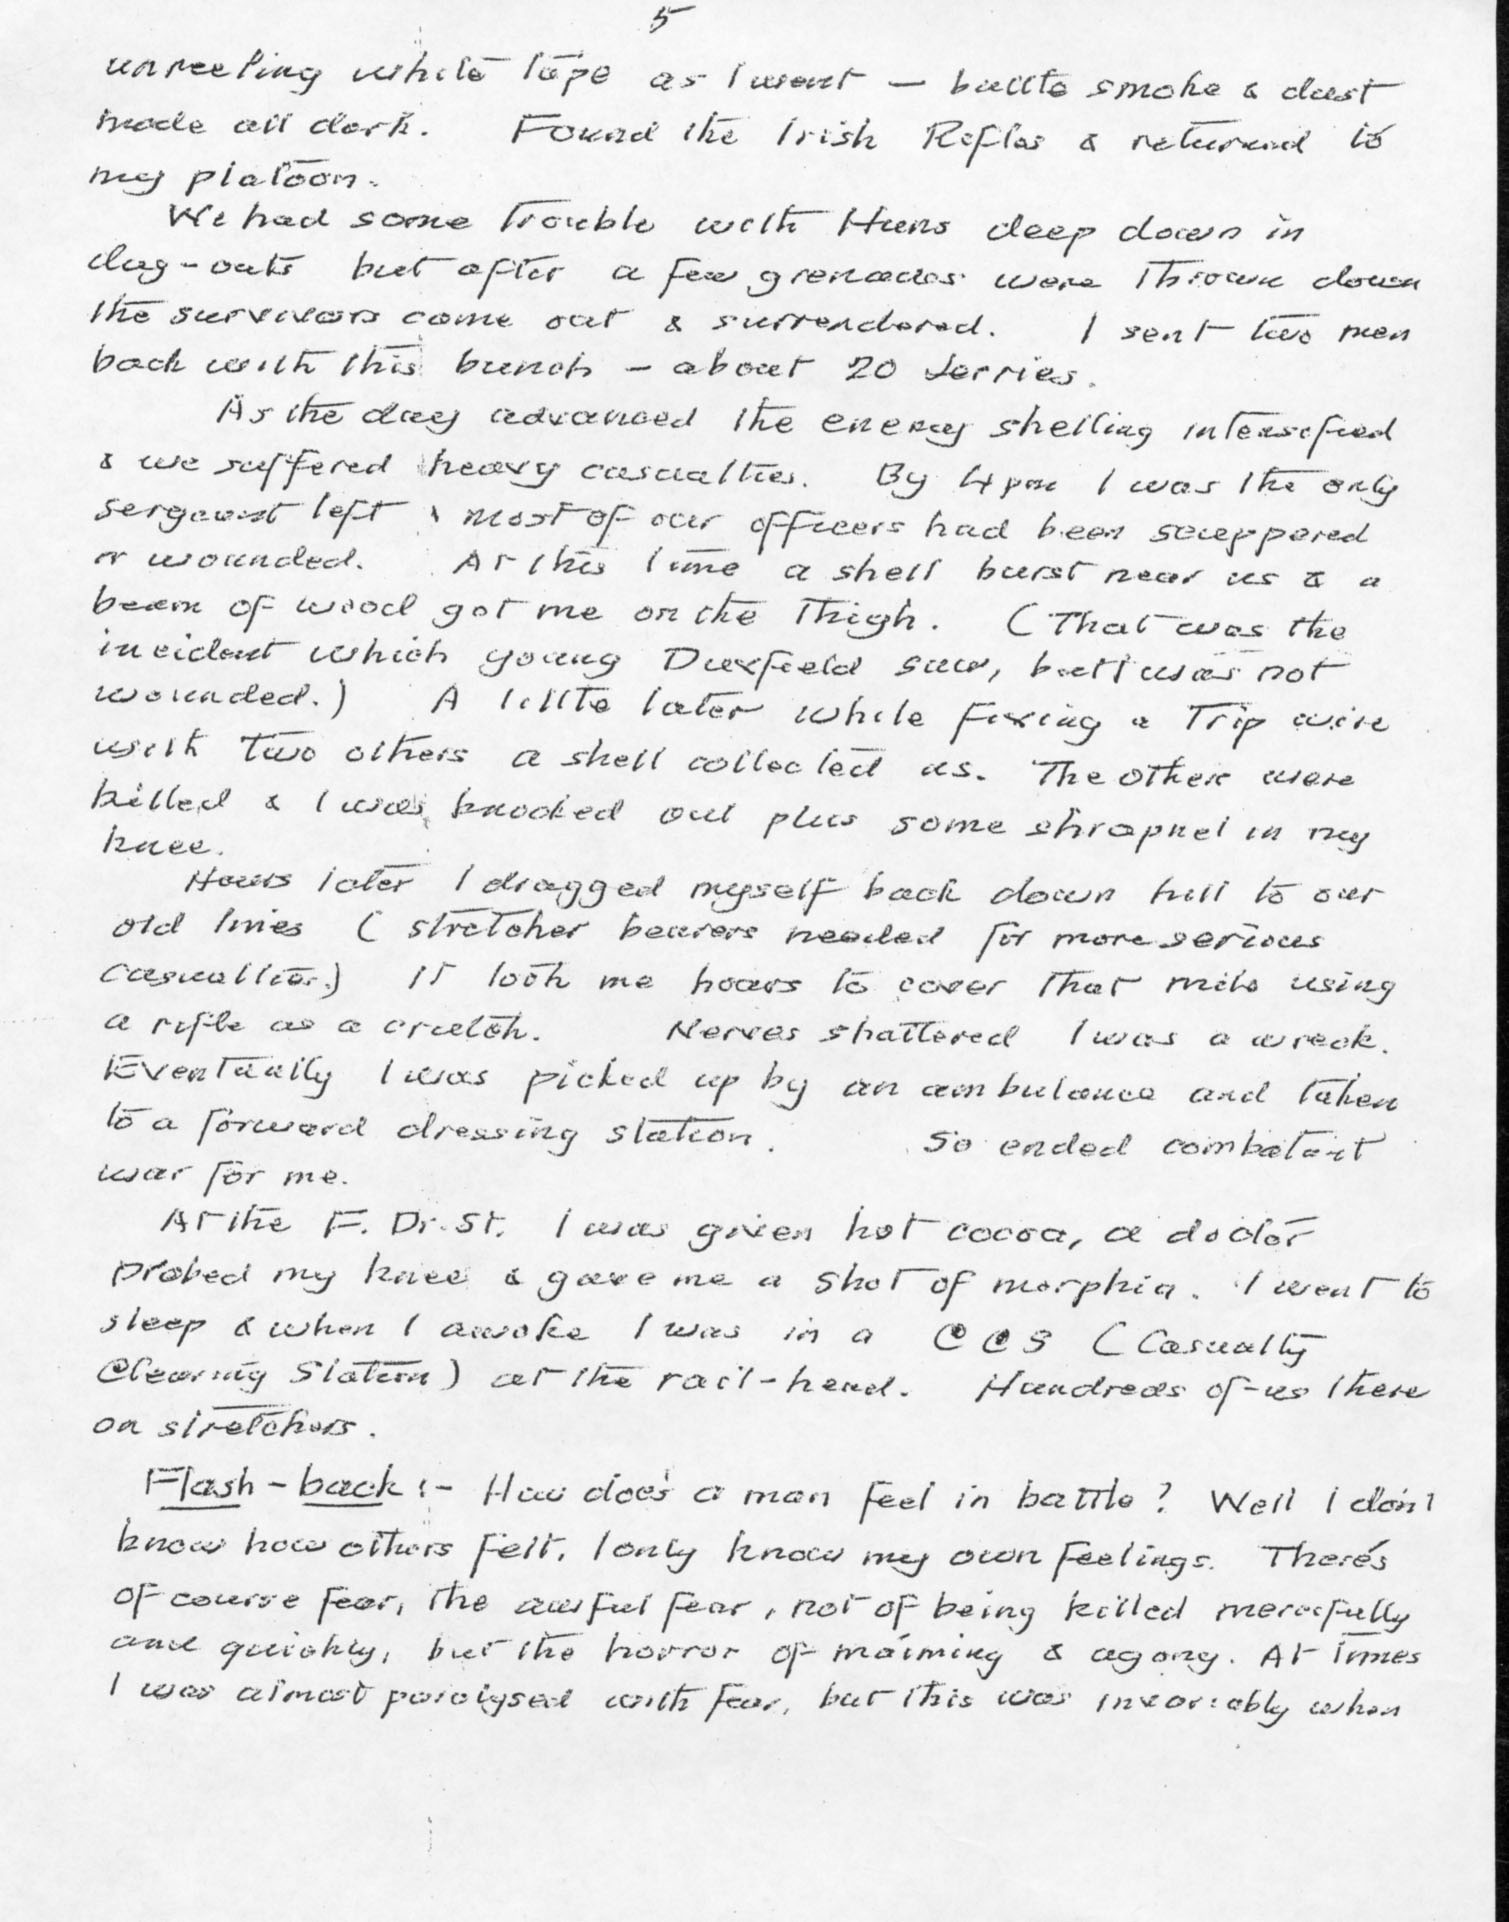 5
unreeling white tape as I went — battle smoke & dust
made all dark. Found the Irish Rifles & returned to
my platoon.
We had some trouble with Huns deep down in
dug-outs but after a few grenades were thrown down
the survivors came out & surrendered. I sent two men
back with this bunch – about 20 Jerries.
As the day advanced the enemy shelling intensified
& we suffered heavy casualties. By 4 pm I was the only
sergeant left & most of our officers had been scuppered
or wounded. At this time a shell burst near us & a
beam of wood got me on the thigh. (That was the
incident which young Duxfield saw, but I was not
wounded.) A little later while fixing a trip wire
with two others a shell collected us. The others were
killed & I was knocked out plus some shrapnel in my
knee.
Hours later I dragged myself back down hill to our
old lines (stretcher bearers needed for more serious
casualties.) It took me hours to cover that mile using
a rifle as a crutch. Nerves shattered I was a wreck.
Eventually I was picked up by an ambulance and taken
to a forward dressing station. So ended combatant
war for me.
At the F. Dr. St. I was given hot cocoa, a doctor
probed my knee & gave me a shot of morphia. I went to
sleep & when I awoke I was in a CCS (Casualty
Clearing Station) at the rail-head. Hundreds of us there
on stretchers.
Flash-back :- How does a man feel in battle? Well I don't
know how others felt, I only know my own feelings. There's
of course fear, the awful fear, not of being killed mercifully
and quickly, but the horror of maiming & agony. At times
I was almost paralysed with fear, but this was invariably when